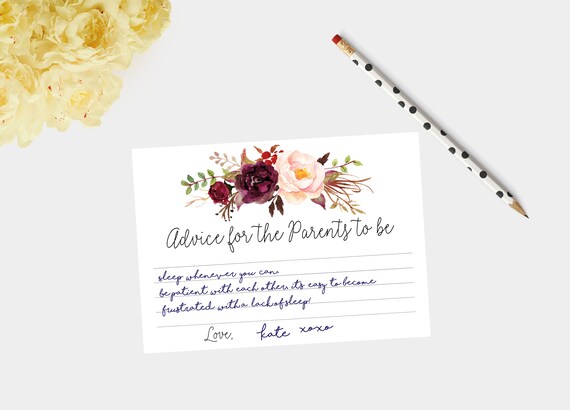 Advice for the Parents to be
sleep whenever you can.
be patient with each other, it's easy to become
frustrated with a lack of sleep!
Love, kate xoxo